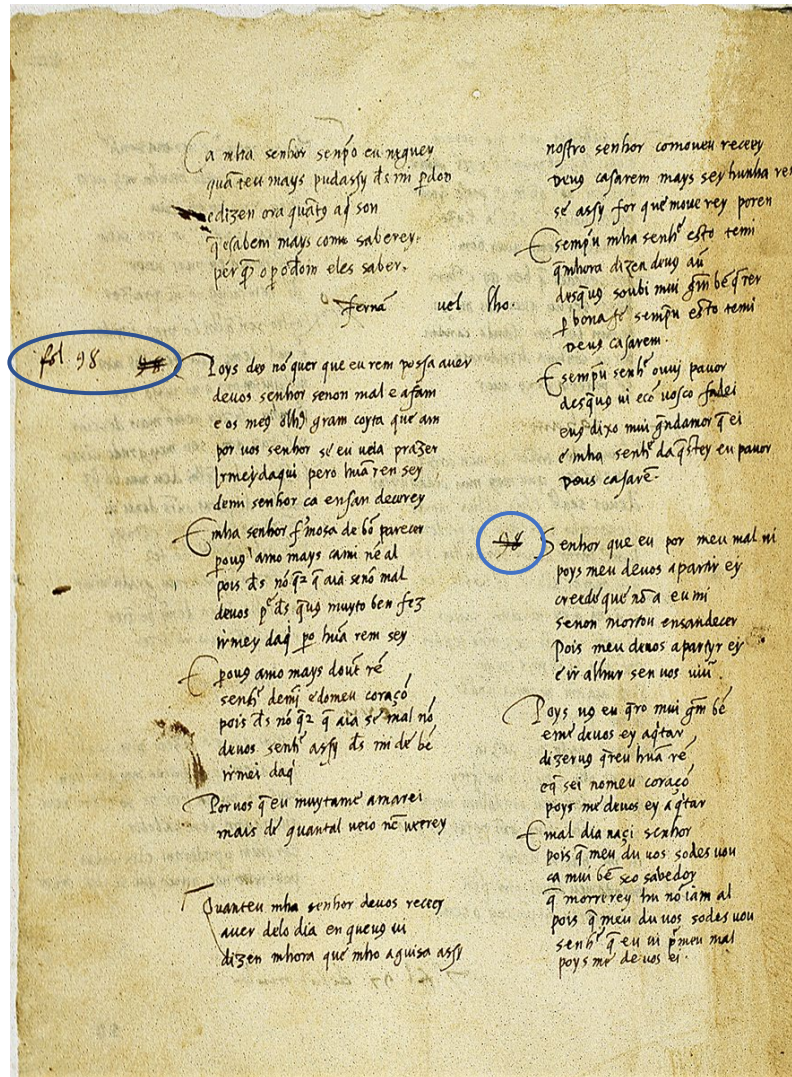 Ca mha senhor senp̃o eu neguey
quãteu mays pud assy d̃s mi p̃don
edizen ora quãtus aq̃ son
q̃ o sabem mays comu saberey
per q̃ o podom eles saber.
Fernã uel lho
fol 98 98
Poys deꝯ nõ quer que eu rem possa auer
deuos senhor senon mal e afam
e os meꝯ olhꝯ gram coyta que am
por uos senhor se eu ueia prazer
Irmeydaqui pero hũa ren sey
demi senhor ca ensandecerey
E mha senhor f̃mosa de bõ parecer
pero uꝯ amo mays cami nẽ al
pois d̃s nõ q̃r q̃ aia senõ mal
deuos p̃ d̃s q̃uꝯ muyto ben fez
irmey daq̃ p̃o hũa rem sey
E perouꝯ amo mays doutˀ rẽ
senhˀ demi e domeu coraçõ
pois d̃s nõ q̃r q̃ aia se mal nõ
deuos senhˀ assy d̃s mi dẽ bẽ
irmei daq̃
Por uos q̃ eu muytamˀ e amarei
mais de quantal ueio nẽ ueerey
Quanteu mha senhor deuos receey
auer delo dia en queuꝯ ui
dizen mhora que mho aguisa assy
nostro senhor comoueu receey
deuꝯ casarem mays sey hunha ren
se assy for que moue rey poren
E sempˀu mha senhˀ esto temi
q̃mhora dizen deuꝯ auˀ
desq̃uꝯ soubi mui grm̃ bẽ q̃rer
p̃ bona fe sempˀu esto temi
deuꝯ casarem.
E sempˀu senhˀ ouuj pauor
desq̃uꝯ ui e cõ uosco falei
euꝯ dixo mui grˀndamor q̃ ei
e mha senhˀ daq̃stey eu pauor
deuꝯ casarẽ.
98 Senhor que eu por meu mal ui
poys meu deuos apartir ey
creede que nõ a eu mi
senon morte ou ensandecer
Pois meu deuos apartyr ey
e ir alhur sen uos uiuˀ.
Poys uꝯ eu q̃ro mui grm̃ bẽ
eme deuos ey aq̃tar
dizeruꝯ q̃reu hũa rẽ
eq̃ sei nomeu coraçõ
poys me deuos ey aq̃tar
E mal dia naçi senhor
pois q̃ meu du uos sodes uou
ca mui bẽ sõo sabedor
q̃ morrerey hu nõ iam al
pois q̃ meu du uos sodes uou
senhˀ q̃ eu ui p̃ meu mal
poys me deuos ei.